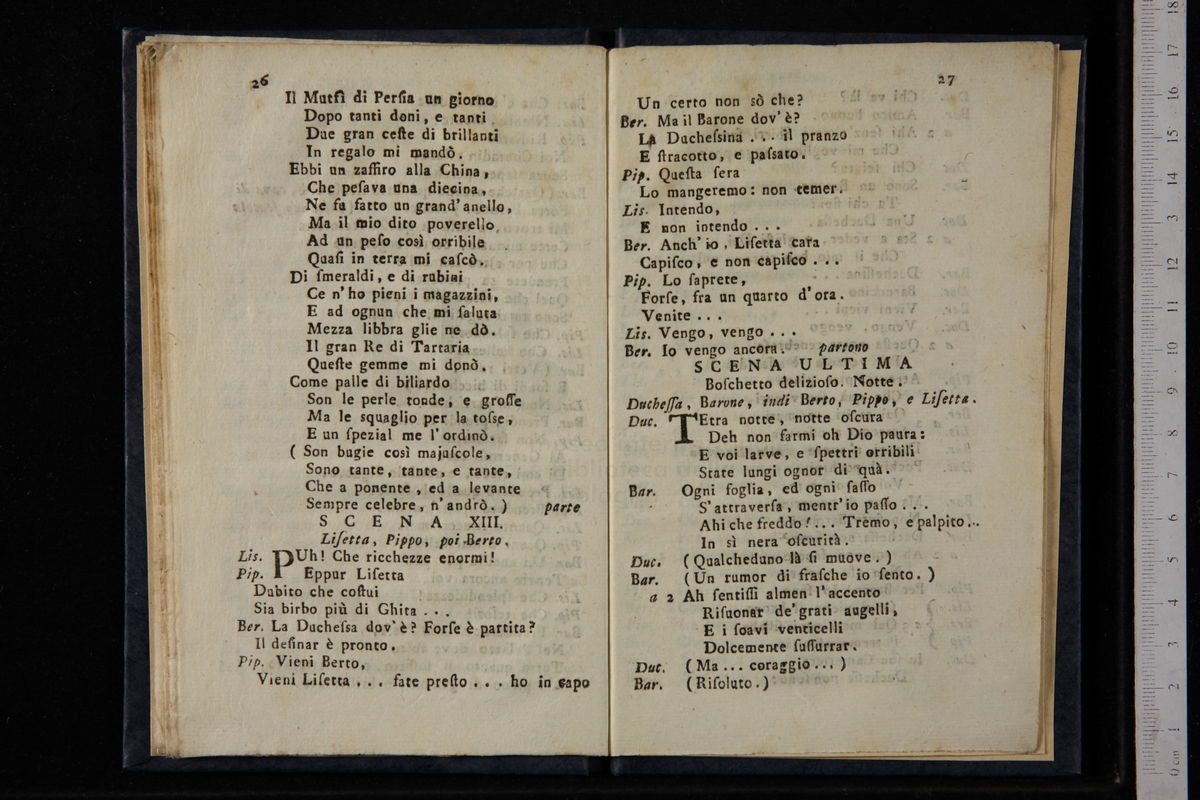 26
Il Mutfì di Perſia un giorno
Dopo tanti doni, e tanti
Due gran ceſte di brillanti
In regalo mi mandò.
Ebbi un zaffiro alla China,
Che peſava una diecina,
Ne fu fatto un grand'anello,
Ma il mio dito poverello,
Ad un peſo così orribile
Quaſi in terra mi caſcò.
Di ſmeraldi, e di rubini
Ce n'ho pieni i magazzini,
E ad ognun che mi ſaluta
Mezza libbra glie ne dò.
Il gran Re di Tartaria
Queſte gemme mi donò.
Come palle di biliardo
Son le perle tonde, e groſſe
Ma le squaglio per la toſse,
E un ſpezial me l'ordinò.
( Son bugie così majuſcole,
Sono tante, tante, e tante,
Che a ponente, ed a levante
Sempre celebre, n'andrò. ) parte
SCENA XIII.
Liſetta, Pippo, poi Berto.
Lis. PUh! Che ricchezze enormi!
Pip. Eppur Liſetta
Dubito che coſtui
Sia birbo più di Ghita . . .
Ber. La Ducheſsa dov'è? Forſe è partita?
Il deſinar è pronto.
Pip. Vieni Berto,
Vieni Liſetta . . . fate preſto . . . ho in capo
27
Un certo non sò che?
Ber. Ma il Barone dov'è?
La Ducheſsina . . . il pranzo
E ſtracotto, e paſsato.
Pip. Queſta ſera
Lo mangeremo: non temer.
Lis. Intendo,
E non intendo . . .
Ber. Anch'io, Liſetta cara
Capiſco, e non capiſco . . .
Pip. Lo ſaprete,
Forſe, fra un quarto d'ora.
Venite . . .
Lis. Vengo, vengo . . .
Ber. Io vengo ancora. partono
SCENA ULTIMA
Boſchetto delizioſo. Notte.
Ducheſſa, Barone, indi Berto, Pippo, e Liſetta.
Duc. TEtra notte, notte oſcura
Deh non farmi oh Dio paura:
E voi larve, e ſpettri orribili
State lungi ognor di quà.
Bar. Ogni foglia, ed ogni ſaſſo
S'attraverſa, mentr'io paſſo . . .
Ahi che freddo! . . . Tremo, e palpito . . .
In sì nera oſcurità.
Duc. (Qualcheduno là ſi muove.)
Bar. (Un rumor di fraſche io ſento.)
a 2 Ah ſentiſſi almen l'accento
Riſuonar de'grati augelli,
E i ſoavi venticelli
Dolcemente ſuſſurrar.
Duc. (Ma . . . coraggio . . . )
Bar. (Riſoluto.)